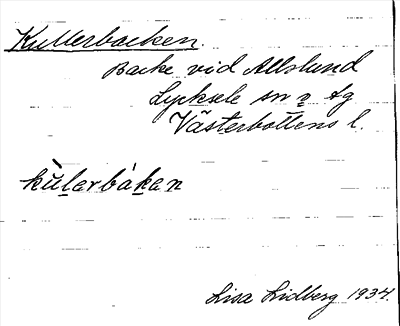 Kullerbacken.
Backe vid Allslund
Lycksele sn o. tg
Västerbottens l.
kùlerbáken
Lisa Lidberg 1934.